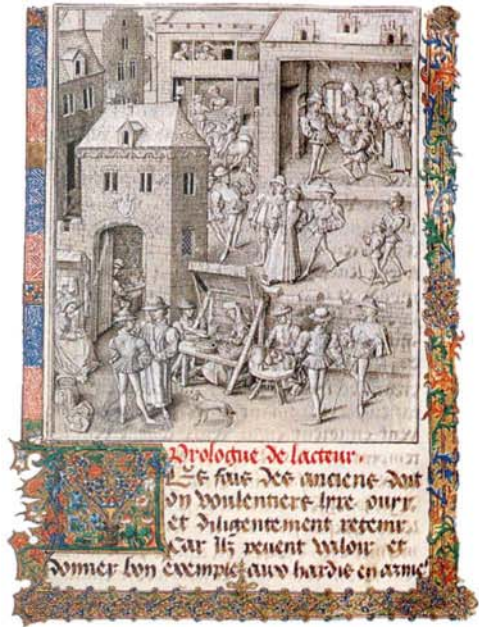 Prologue de lacteur.
Es fais des anciens doit
on voulentiers lyre ouyr
et diligentement retenir
Car ilz peuent valoir et
donner bon exemple aux hardis en arme